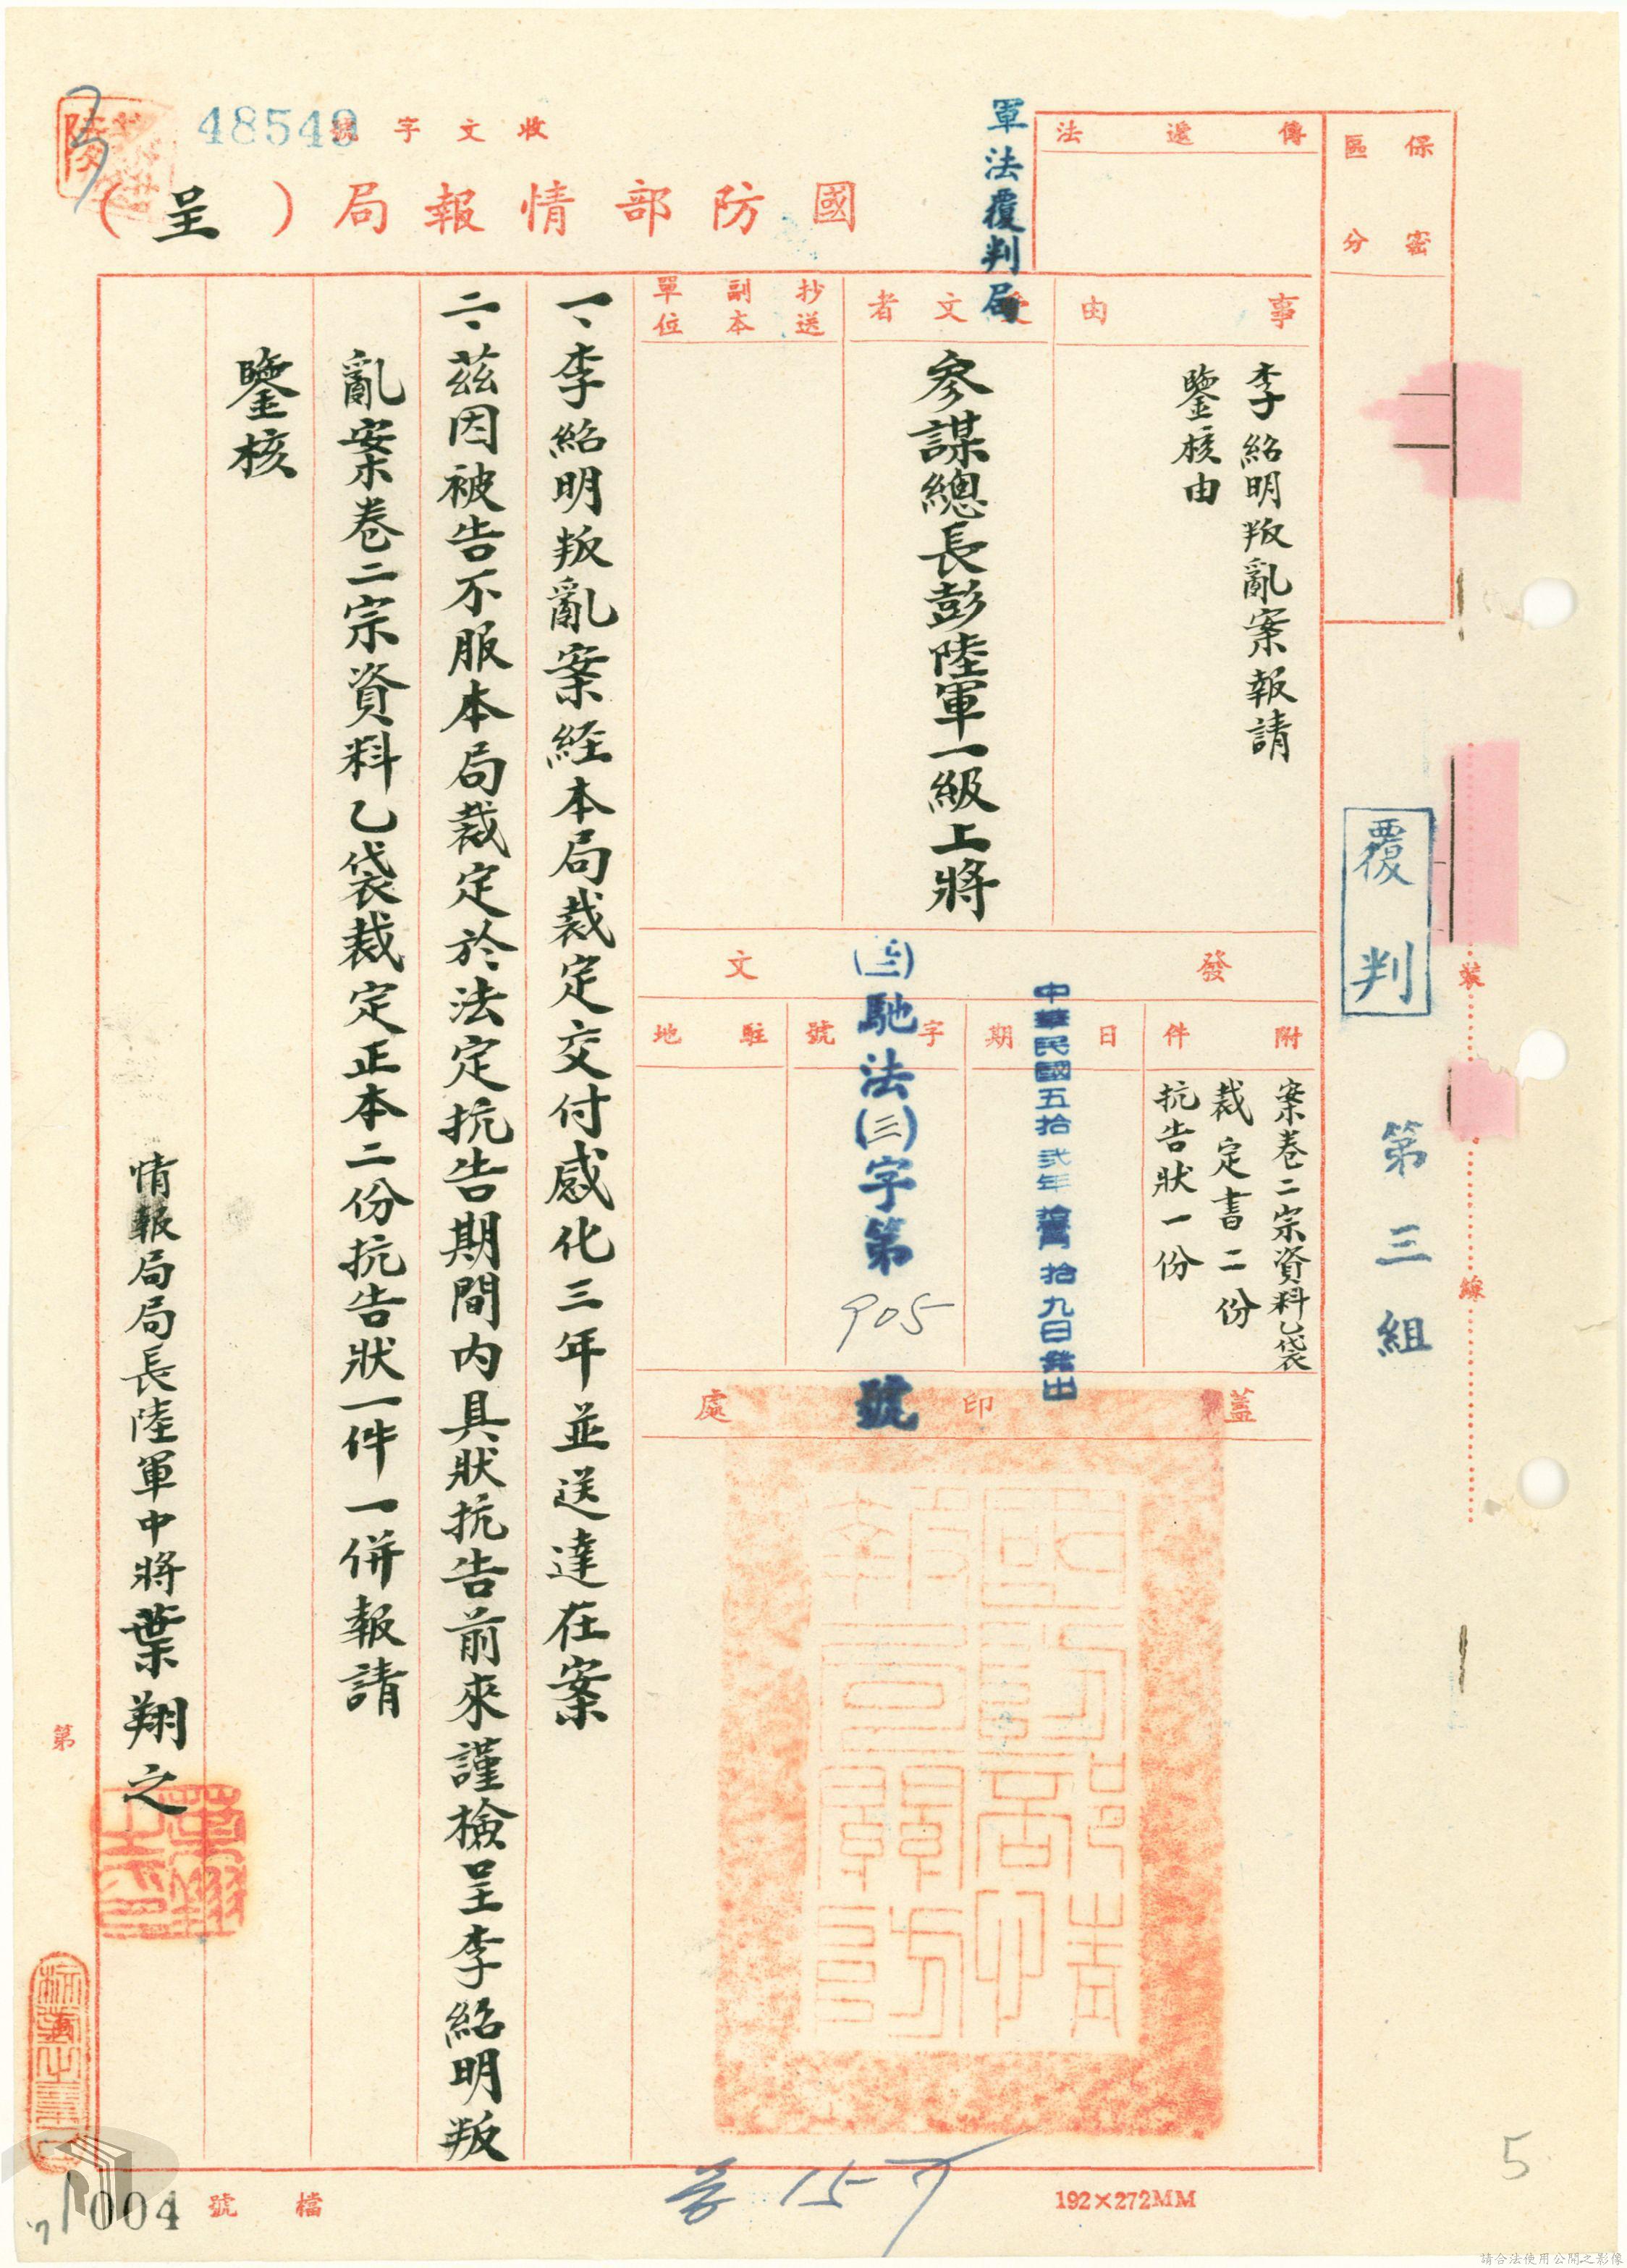 保密
區分
傳遞法
軍法覆判局
收文字號
48549
國防部情報局（呈）
事由
李紹明叛亂案報請
鑒核由
受文者
參謀總長彭陸軍一級上將
抄送
副本
單位
發文
附件
案卷二宗資料乙袋
裁定書二份
抗告狀一份
日期
中華民國五拾貳年
拾九日發出
字號
馳法(三)字第
905
號
駐地
蓋印處
一、李紹明叛亂案經本局裁定交付感化三年並送達在案
二、茲因被告不服本局裁定於法定抗告期間內具狀抗告前來謹檢呈李紹明叛
亂案卷二宗資料乙袋裁定正本二份抗告狀一件一併報請
鑒核
情報局局長陸軍中將葉翔之
覆判
第三組
裝
線
第
檔號
004
157
192×272MM
5
請合法使用公開之影像